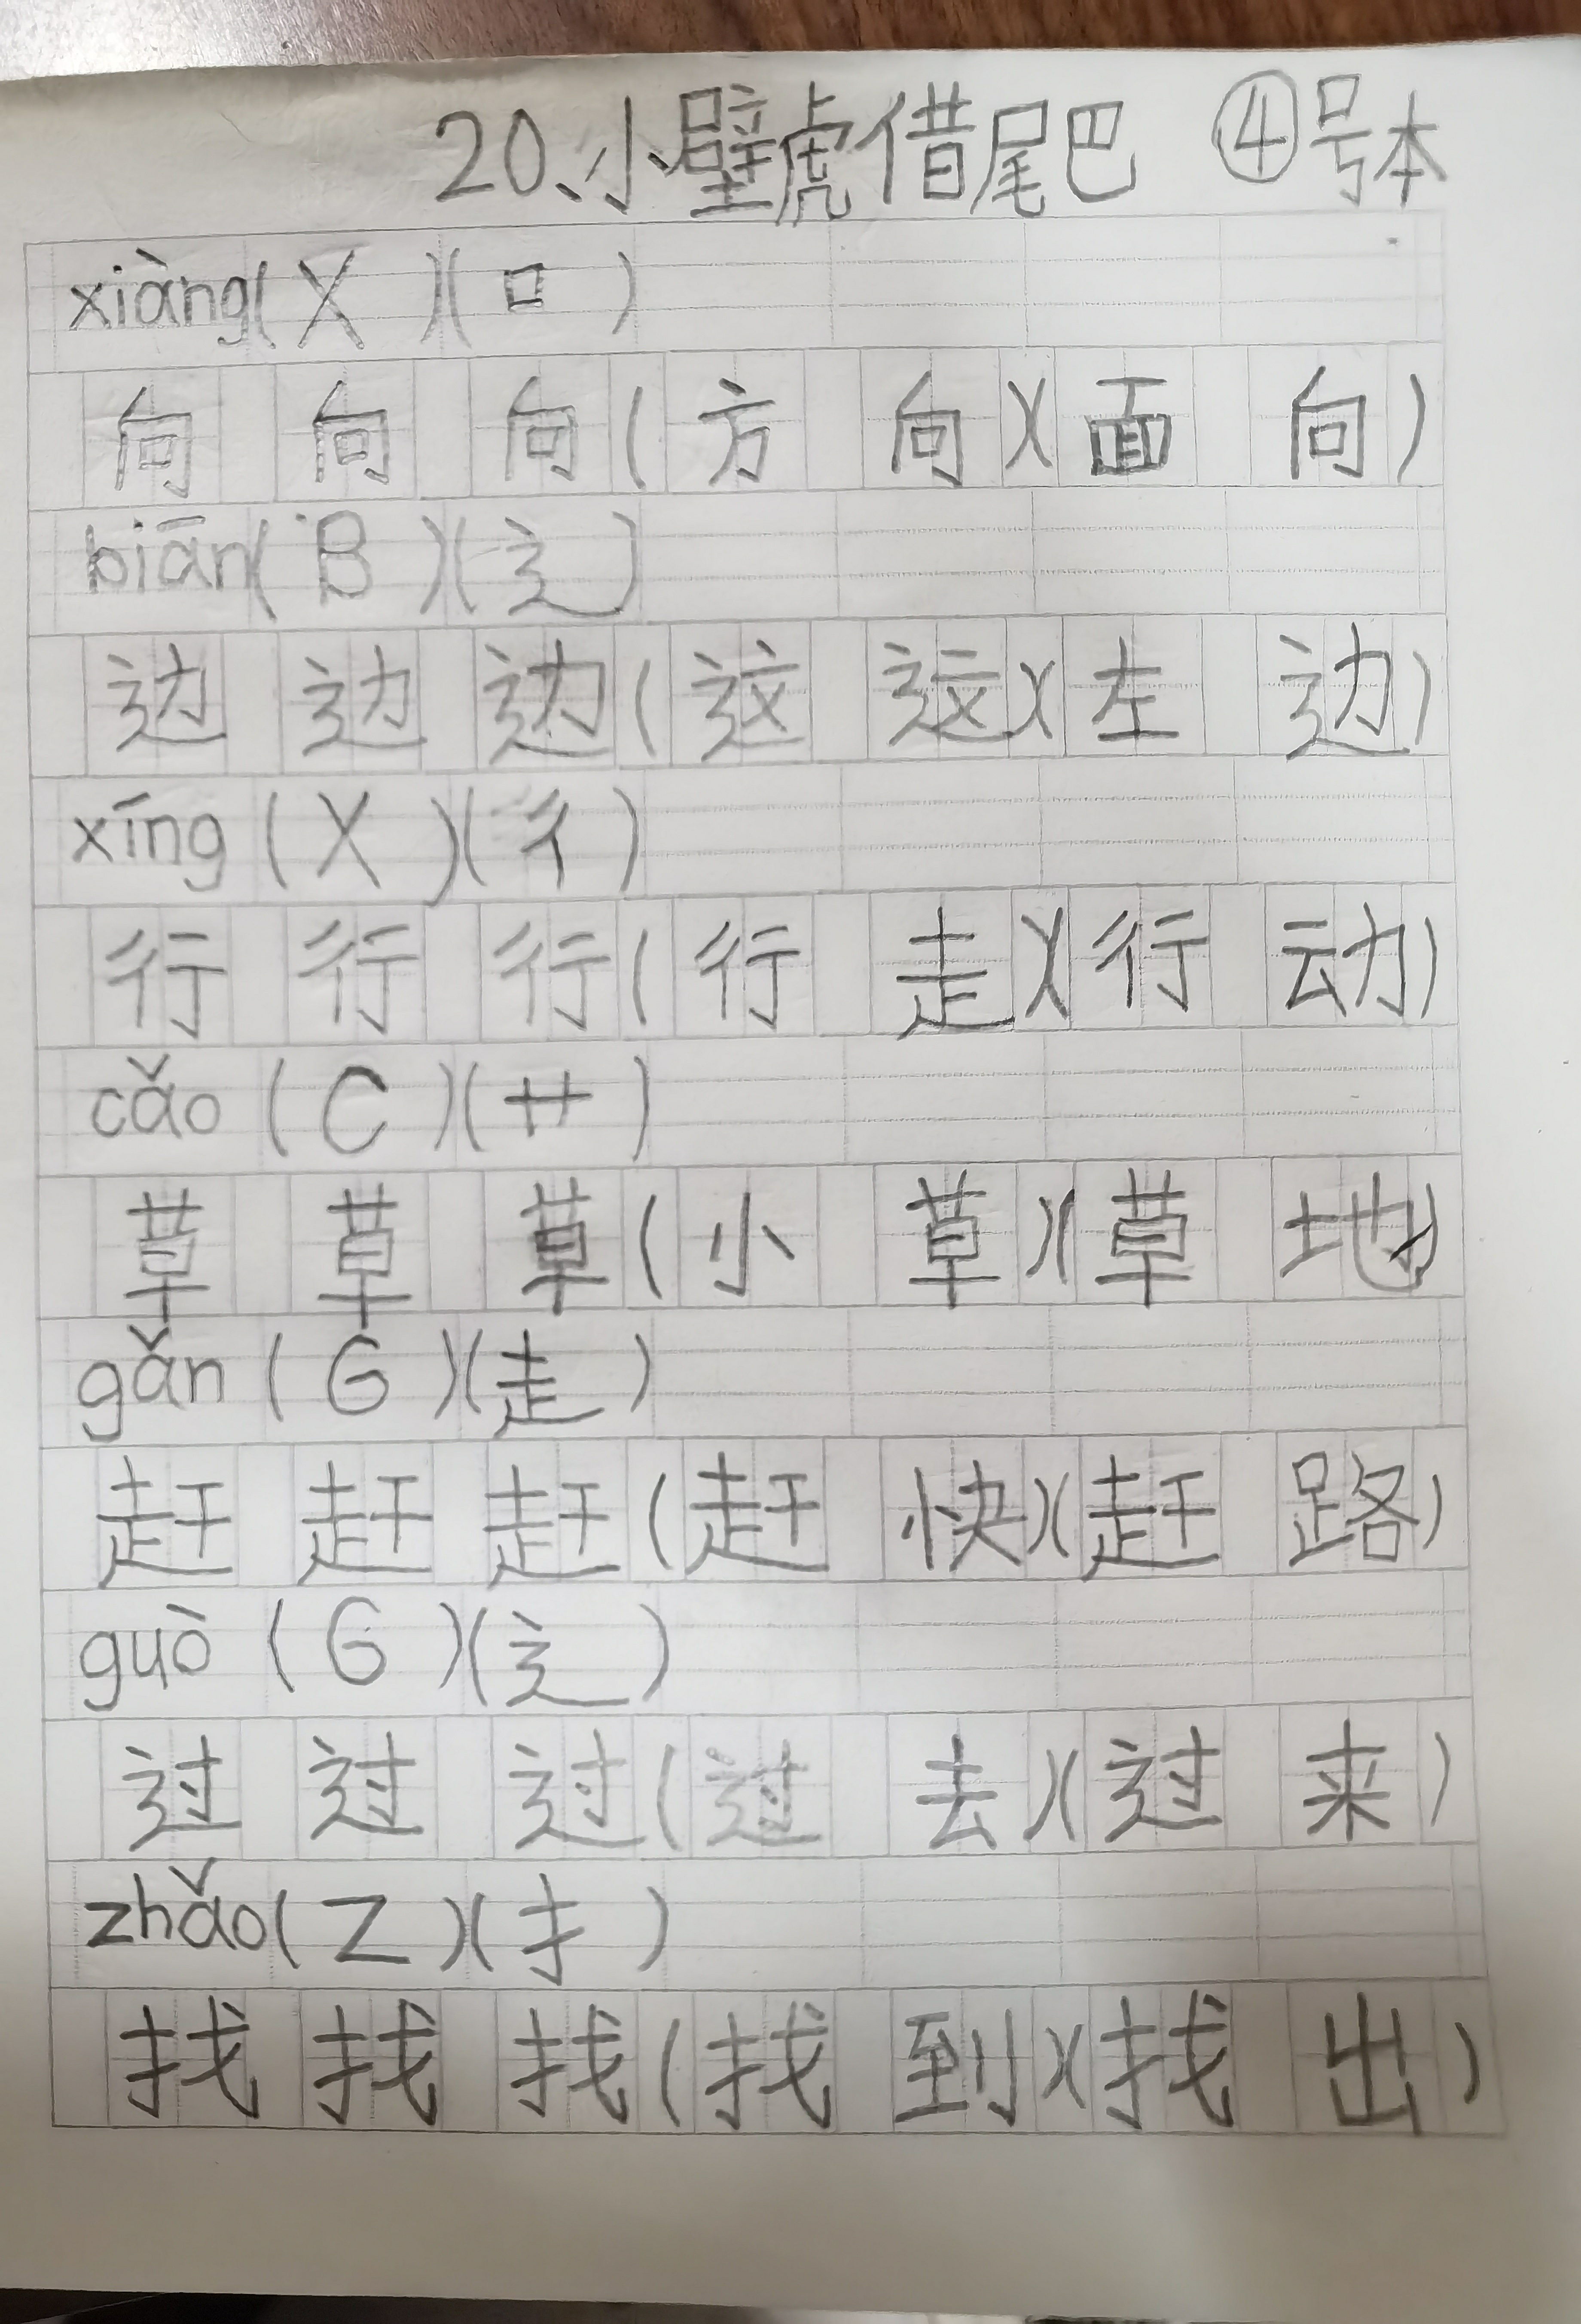 20、小壁虎借尾巴 ④号本
xiàng(X)(口)
向 向 向(方 向)(面 向)
biān(B)(辶)
边 边 边(这 这)(左 边)
xíng(X)(彳)
行 行 行(行 走)(行 动)
cǎo(C)(艹)
草 草 草(小 草)(草 地)
gǎn(G)(走)
赶 赶 赶(赶 快)(赶 路)
guò(G)(辶)
过 过 过(过 去)(过 来)
zhǎo(Z)(扌)
找 找 找(找 到)(找 出)